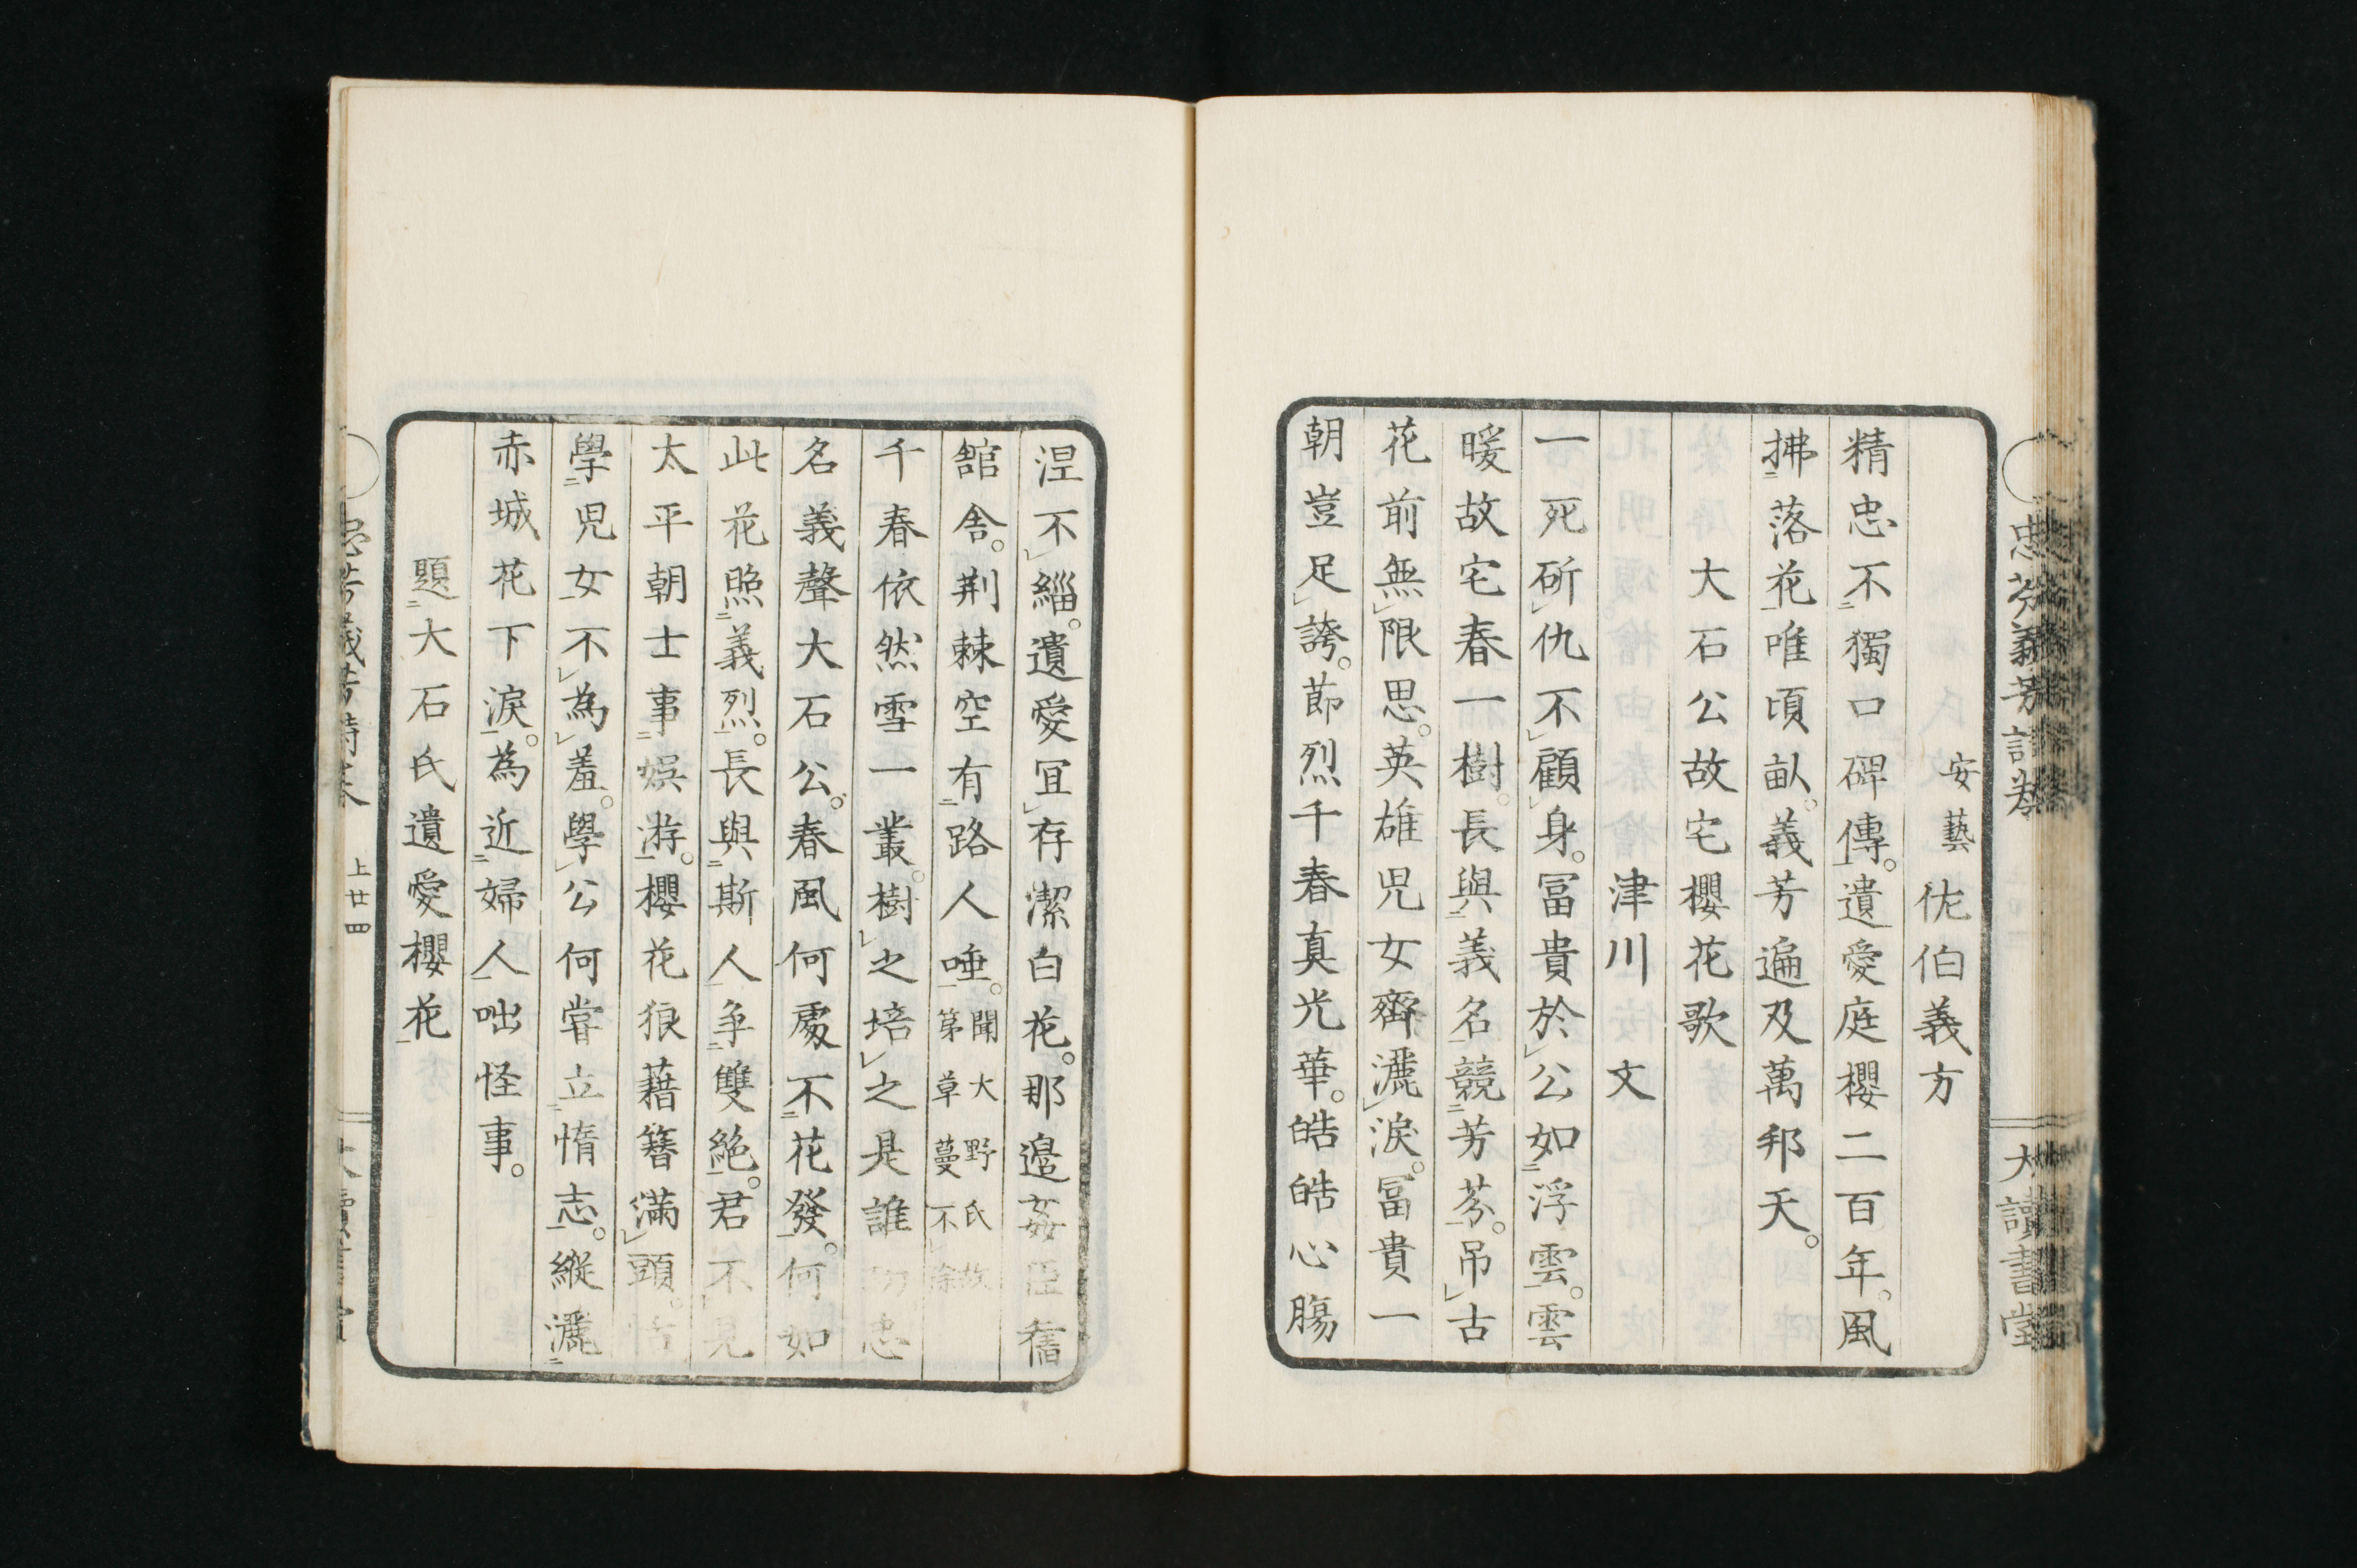 忠芬義芳詩巻
大讀書堂
安藝 佐伯義方
精忠不獨口碑傳。遺愛庭櫻二百年。風
拂落花唯頃畝。義芳遍及萬邦天。
大石公故宅櫻花歌
津川 文
一死斫仇不顧身。冨貴於公如浮雲。雲
暖故宅春一樹。長與義名競芳芬。吊古
花前無限思。英雄児女齊灑淚。冨貴一
朝豈足誇。莭烈千春真光華。皓皓心膓
涅不緇。遺愛冝存潔白花。那邉姦臣舊
舘舍。荆棘空有路人唾。聞大野氏故第草蔓不除
千春依然雪一叢。樹之培之是誰功忠
名義聲大石公。春風何處不花發。何如
此花照義烈。長與斯人争雙絶。君不見
太平朝士事娯游。櫻花狼藉簪滿頭。
學児女不為羞。學公何嘗立惰志。縱灑
赤城花下淚。為近婦人咄怪事。
題大石氏遺愛櫻花
上廿四